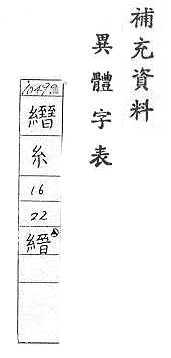 補充資料
異體字表
糸
16
22
縉